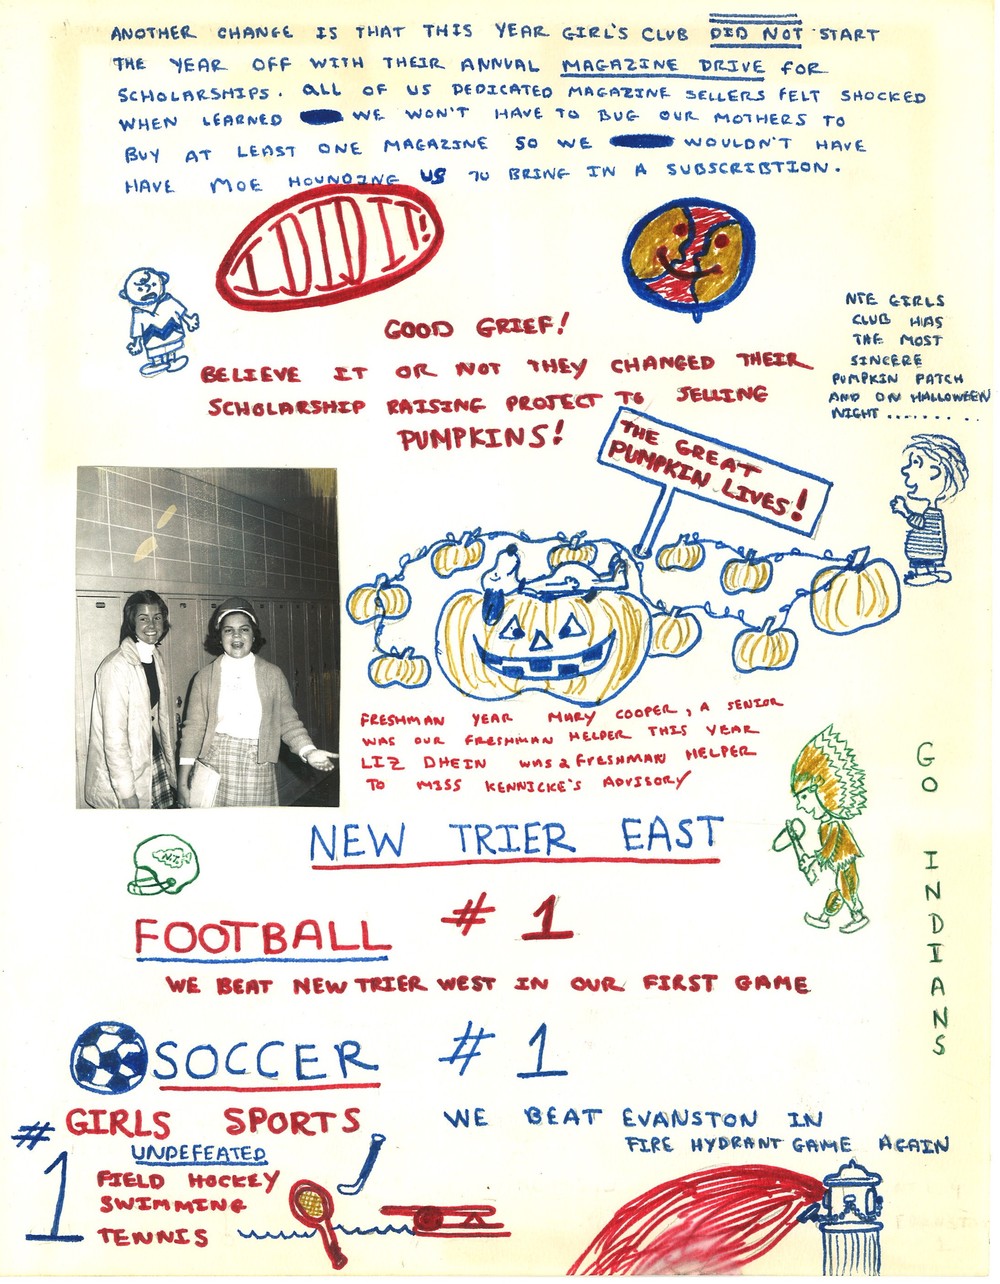 ANOTHER CHANGE IS THAT THIS YEAR GIRL'S CLUB DID NOT START
THE YEAR OFF WITH THEIR ANNUAL MAGAZINE DRIVE FOR
SCHOLARSHIPS. ALL OF US DEDICATED MAGAZINE SELLERS FELT SHOCKED
WHEN LEARNED WE WON'T HAVE TO BUG OUR MOTHERS TO
BUY AT LEAST ONE MAGAZINE SO WE WOULDN'T HAVE
HAVE MOE HOUNDING US TO BRING IN A SUBSCRIBTION.
I DID IT!
GOOD GRIEF!
BELIEVE IT OR NOT THEY CHANGED THEIR
SCHOLARSHIP RAISING PROJECT TO SELLING
PUMPKINS!
NTE GIRLS
CLUB HAS
THE MOST
SINCERE
PUMPKIN PATCH
AND ON HALLOWEEN
NIGHT ........
THE GREAT
PUMPKIN LIVES!
FRESHMAN YEAR MARY COOPER, A SENIOR
WAS OUR FRESHMAN HELPER THIS YEAR
LIZ DHEIN WAS A FRESHMAN HELPER
TO MISS KENNICKE'S ADVISORY
GO INDIANS
NEW TRIER EAST
N.T.
FOOTBALL # 1
WE BEAT NEW TRIER WEST IN OUR FIRST GAME
SOCCER # 1
#1 GIRLS SPORTS
UNDEFEATED
FIELD HOCKEY
SWIMMING
TENNIS
WE BEAT EVANSTON IN
FIRE HYDRANT GAME AGAIN